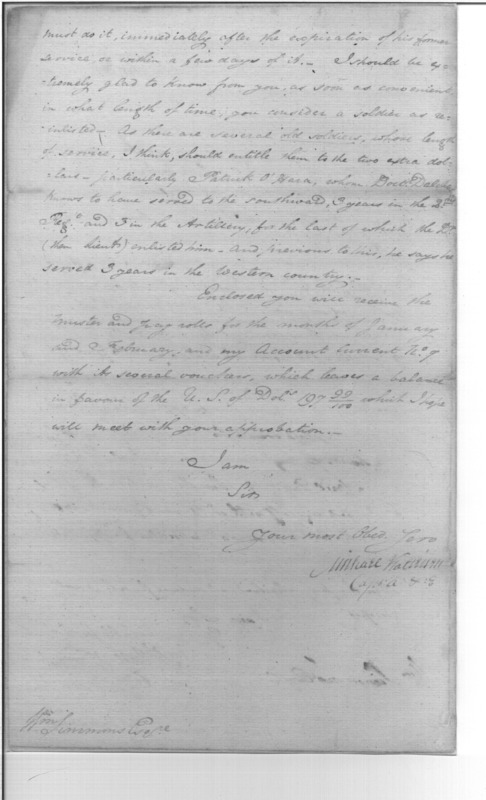 must do it, immediately after the expiration of his former
service, or within a few days of it. – I should be ex-
tremely glad to know from you, as soon as convenient,
in what length of time, you consider a soldier as re-
inlisted. As there are several old soldiers, whose length
of service, I think, should entitle them to the two extra dol-
lars – particularly Patrick O'Hara, whom Doctr
knows to have served to the southward, 3 years in the 2nd
Regt. and 3 in the Artillery, for the last of which the Dr.
(then Lieut) enlisted him – and previous to this, he says he
served 3 years in the Western country. –
Enclosed you will receive the
muster and pay rolls for the months of January
and February, and my Account Current No. 9
with its several vouchers, which leaves a balance
in favour of the U. S. of Dols. 197 99/100 which I hope
will meet with your approbation. –
I am
Sir
Your most Obed. Serv
Capt. A & E
Wm Simmons Esqre